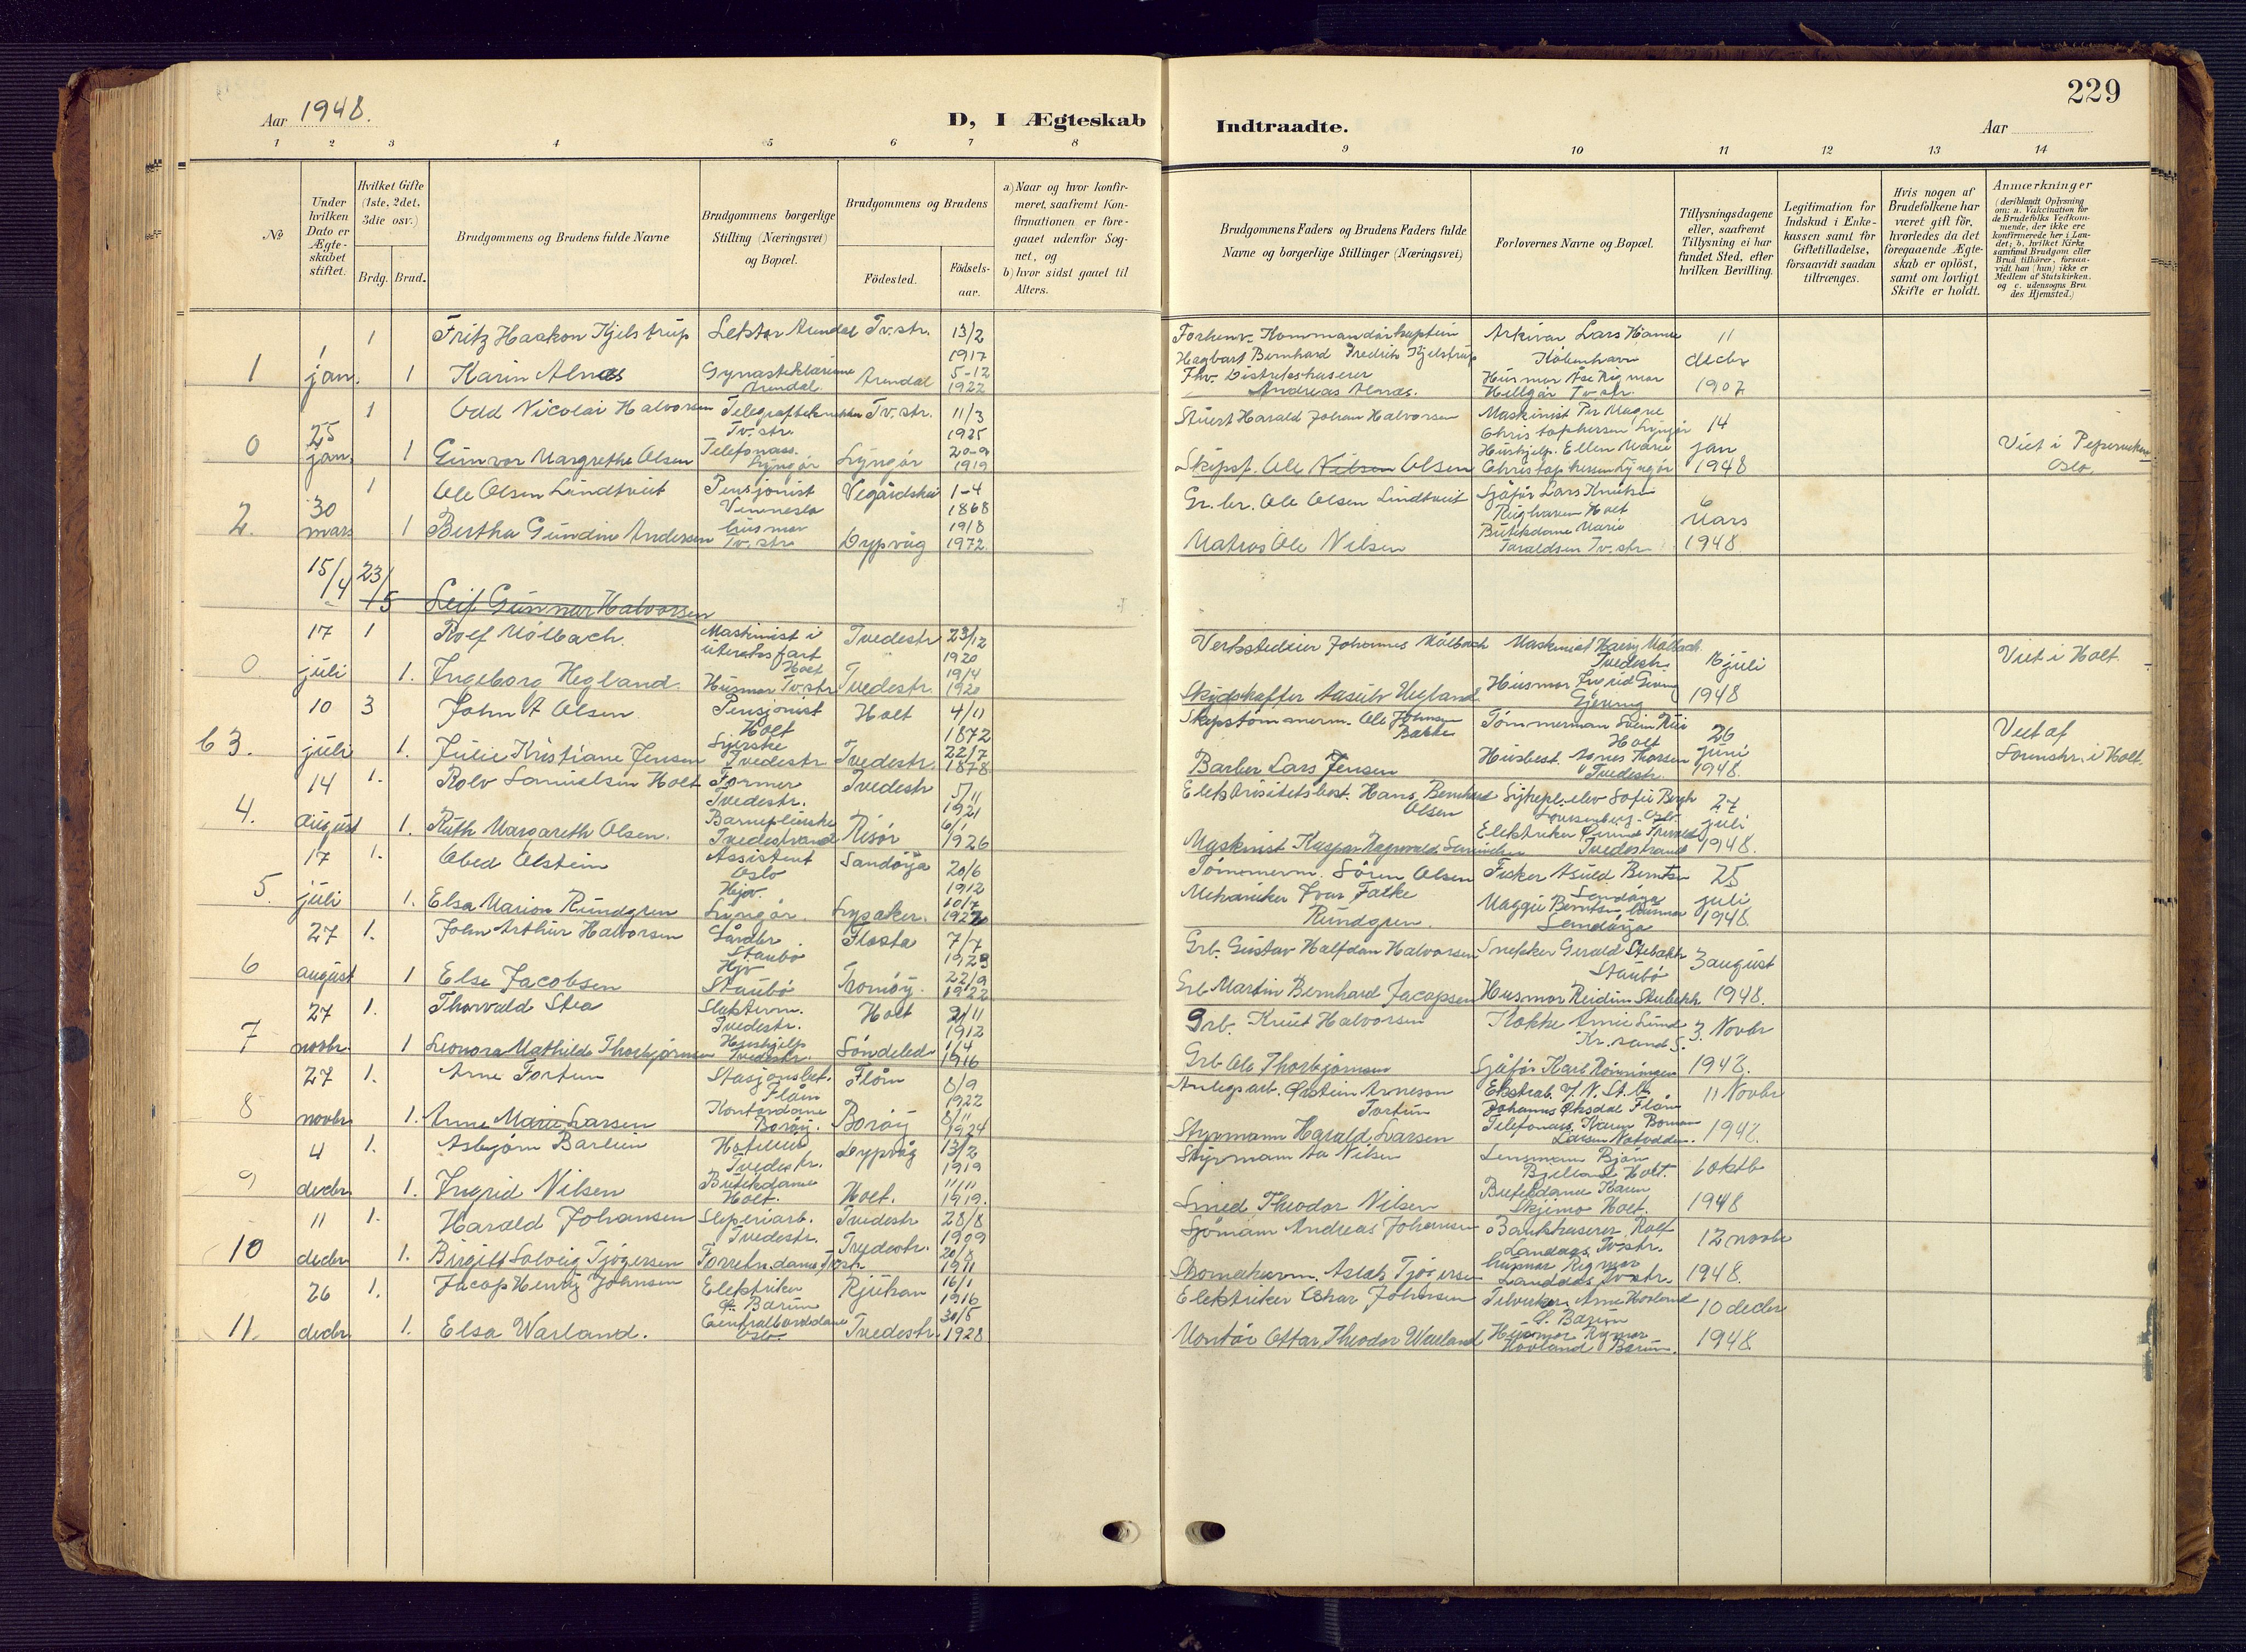 229
Aar 1948.
D, I Ægteskab Indtraadte.
Aar
1 2 3 4 5 6 7 8 9 10 11 12 13 14
№
Under hvilken Dato er Ægteskabet stiftet.
Hvilket Gifte (1ste, 2det, 3die osv.)
Brdg. Brud.
Brudgommens og Brudens fulde Navne
Brudgommens borgerlige Stilling (Næringsvei) og Bopæl.
Brudgommens og Brudens
Födested. Födselsaar.
a) Naar og hvor konfirmeret, saafremt Konfirmationen er foregaaet udenfor Sognet, og
b) hvor sidst gaaet til Alters.
Brudgommens Faders og Brudens Faders fulde Navne og borgerlige Stillinger (Næringsvei)
Forlovernes Navne og Bopæl.
Tillysningsdagene eller, saafremt Tillysning ei har fundet Sted, efter hvilken Bevilling.
Legitimation for Indskud i Enkekassen samt for Giftetilladelse, forsaavidt saadan tiltrænges.
Hvis nogen af Brudefolkene har været gift för, hvorledes da det foregaaende Ægteskab er oplöst, samt om lovligt Skifte er holdt.
Anmærkninger
(deriblandt Oplysning om: a. Vakcination for de Brudefolks Vedkommende, der ikke ere konfirmerede her i Landet; b. hvilket Kirkesamfund Brudgom eller Brud tilhörer, forsaavidt han (hun) ikke er Medlem af Statskirken. og c. udensogns Brudes Hjemsted.)
1 Fritz Haakon Kjelstrup Lektor Arendal Tv.str. 13/2 1917
Forhenv. Kommandörkaptein Hagbart Bernhard Fredrik Kjelstrup
Arkivar Lars Hamre København
11 decbr 1907
1 1 jan. 1 Karin Alnæs Arendal Arendal 5-12 1922
Fhv. Distriktskaserer Andreas Alnæs.
Husmor Åse Rigmor Hellgår Tv.str.
1 Odd Nicolai Halvorsen Tv.str. Tv.str. 11/3 1925
Stuert Harald Johan Halvorsen
Maskinist Per Magne Christophersen Lyngør
14 jan 1948
0 25 jan. 1 Gunvor Margrethe Olsen Telefonass. Lyngør Lyngör 20-9 1919
Skipsf. Ole Nilsen Olsen
Hushjelp. Ellen Marie Christophersen Lyngør
Viet i Oslo.
1 Ole Olsen Lindtveit Pensjonist Vennesla Vegårdshei 1-4 1868
Gr. br. Ole Olsen Lindtveit
Sjåför Lars Knutsen Holt
6 Mars 1948.
2. 30 mars 1 Bertha Gundine Andersen husmor Tv.str. Dypvåg 19/8 1972
Matros Ole Nilsen
Butikdame Marie Taraldsen Tv.str.
15/4 23/5 Leif Gunnar Halvorsen
17 1 Rolf Mölbach. Maskinist i utenriksfart Holt Tvedestr 23/12 1920
Verkstedeier Johannes Mölbach
Maskinist Harry Mölbach Tvedestr.
16 juli 1948
Viet i Holt.
0 juli 1. Ingeborg Hegland. Husmor Tv.str Tvedestr. 19/4 1920
Skydskaffer Aasulv Hegland
Husmor Ingrid Gjeving
10 3 John A Olsen Pensjonist Holt Holt 4/11 1872
Skipstömmerm. Ole Johnsen Bakke
Tömmerman Svein Holt
26 juni 1948.
Viet af Sorenskr. i Holt.
63. juli 1. Julie Kristiane Jensen Syerske Tvedestr. Tvedestr. 22/7 1878
Barber Lars Jensen
Husbest. Agnes Thorsen Tvedestr.
14 1. Rolv Samuelsen Holt Former Tvedestr. Tvedestr 5/11 1921
Elektrisitetsbest. Hans Bernhard Olsen
Sykepl. elev Sofie Bergh
27 juli 1948.
4. august 1. Ruth Margareth Olsen. Barnepleierske Tvedestrand Risör 6/1 1926
Maskinist Kaspar Ragnvald Samuelsen
Elektriker Tvedestrand
17 1. Obed Olstein Assistent Oslo Sandöya 20/6 1912
Tömmerm. Sören Olsen
Fisker Asuld Berntsen Sandöya
25 juli 1948.
5. juli 1. Elsa Marion Rundgren Hjv. Lyngör. Lysaker. 10/7 1922
Mekaniker Ivar Falke Rundgren.
Maggie Berntsen husmor Sandöya
27 1. John Arthur Halvorsen Gårdbr. Staubö Flosta 7/7 1923
Grb. Gustav Halfdan Halvorsen
Snekker Gerald Stebekk Staubö
3 august 1948.
6 august 1 Else Jacobsen Hjv Staubö Tromöy. 22/9 1922
Grb Martin Bernhard Jacopsen
Husmor Reidun Stubekk
27 1. Thorvald Stea Slakterm. Tvedestr. Holt 2/11 1912
Grb. Knut Halvorsen
Kokke Arnie Lund Kr.sand S.
3. Novbr 1948.
7 novbr. 1 Leonora Mathilde Thorbjörnsen Hushjelp Tvedestr. Söndeled 1/4 1916
Grb Ole Thorbjörnsen
Sjåför Karl Rönningen
27 1. Arne Fortun Stasjonsbet. Flåm Flåm 8/9 1922
Anlegsarb. Øistein Arneson Fortun
Ekstrab. V/N. St. B. Johannes Øksdal Flåm
11 Novbr 1948.
8 novbr. 1. Anne Marie Larsen Kontordame Boröy. Boröy 8/11 1924
Styrmann Harald Larsen
Telefonass. Karen Larsen Notodden.
4 1. Asbjörn Barlien Tvedestr. Dypvåg 13/2 1919
Styrmann Aa Nilsen
Lensmann Bjön Bjelland Holt.
6 oktb 1948
9 decbr. 1. Ingrid Nilsen Butikdame Holt. Holt. 11/11 1919.
Smed Theodor Nilsen
Butikdame Karen Skjemo Holt.
11 1. Harald Johansen Sliperiarb. Tvedestr. Tvedestr 28/8 1909
Sjömann Andreas Johansen
Bankkaserer Rolf Landaas Tv.str.
12 novbr 1948.
10 decbr. 1. Birgitt Solveig Tjögersen Forretn.dame Tv.str Tvedestr. 20/8 1911
Skomakerm. Aslak Tjögersen
husmor Rigmor Landaas Tv.str.
26 1. Jacop Henry Johnsen Elektriker Ö. Bærum Rjukan 16/1 1916
Elektriker Johnsen
Arne Hovland Ö. Bærum
10 decbr 1948.
11. decbr. 1. Elsa Warland. Centralborddame Oslo. Tvedestr. 30/5 1928
Montör Ottar Theodor Warland
Husmor Rigmor Hovland Bærum.